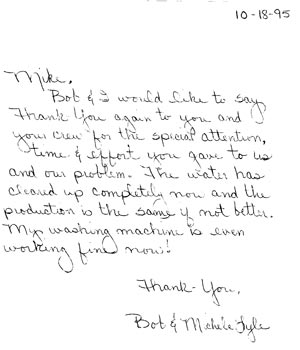 10-18-95
Mike,
Bob & I would like to say
Thank You again to you and
your crew for the special attention,
time & effort you gave to us
and our problem. The water has
cleared up completely now and the
production is the same if not better.
My washing machine is even
working fine now!!
Thank-You,
Bob & Michele Lyle